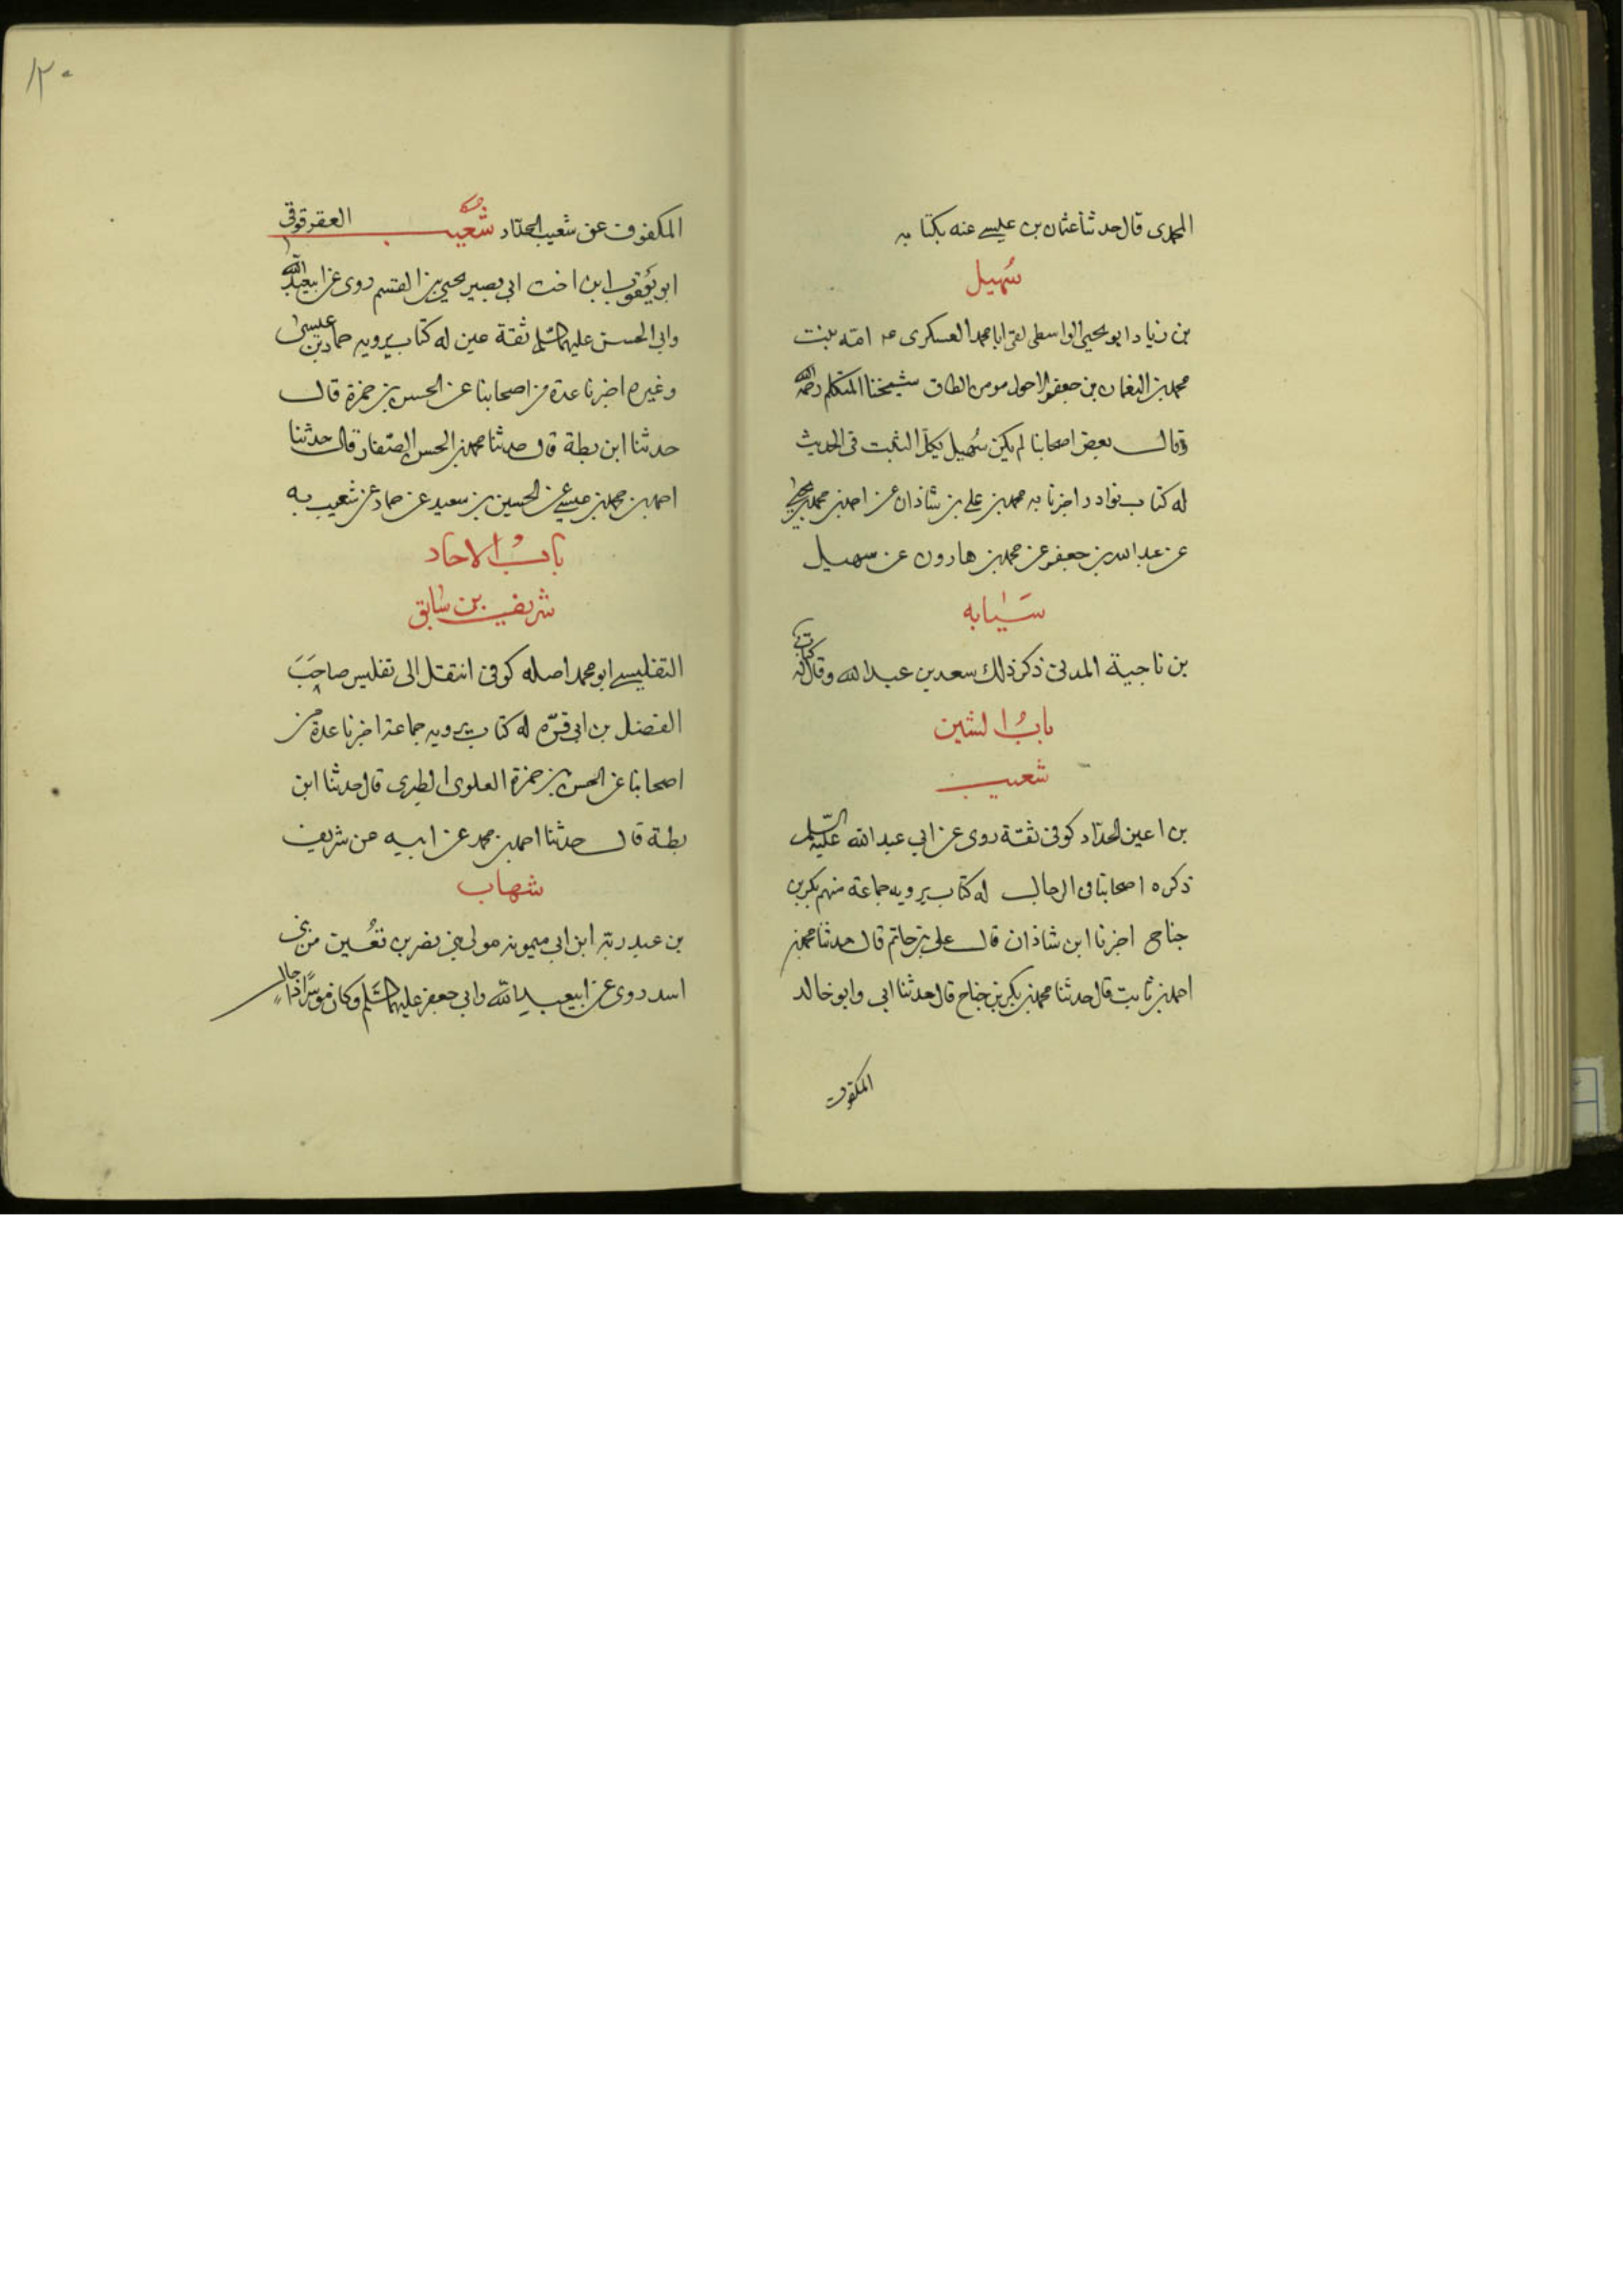 المحمدى قال حدثنا عثمان بن عيسى عنه بكتابه
سُهيل
بن زياد ابو يحيى الواسطى لقى ابا محمد العسكرى ع امّه بنت
محمد بن النعمان بن جعفر الاحول مومن الطاق شيخنا المتكلم رحمه الله
وقال بعض اصحابنا لم يكن سُهيل بكلّ الثبت فى الحديث
له كتاب نوادر اخبرنا به محمد بن على بن شاذان عن احمد بن محمد بن يحيى
عن عبد الله بن جعفر عن محمد بن هارون عن سهيل
سَيابه
بن ناجية المدنى ذكر ذلك سعد بن عبد الله وقال له كتاب
بابُ الشين
شعيب
بن اعين الحدّاد كوفى ثقة روى عن ابي عبد الله عليه السلم
ذكره اصحابنا فى الرجال له كتاب يرويه جماعة منهم بكر بن
جناح اخبرنا ابن شاذان قال على بن حاتم قال حدثنا محمد بن
احمد بن ثابت قال حدثنا محمد بن بكر بن جناح قال حدثنا ابى وابو خالد
المكفوف
١٢٠
المكفوف عن شعيب الحدّاد شُعيب العقرقوقى
ابو يَعقوب ابن اخت ابى بصير يحيى بن القسم روى عن ابيعبد الله
وابى الحسن عليهما السلم ثقة عين له كتاب يرويه حماد بن عيسى
وغيره اخبرنا عدة من اصحابنا عن الحسن بن حمزة قال
حدثنا ابن بطة قال حدثنا محمد بن الحسن الصّفار قال حدثنا
احمد بن محمد بن عيسى عن الحسين بن سعيد عن حماد عن شعيب به
بابُ الاحاد
شريف بن سابق
التفليسى ابو محمد اصله كوفى انتقل الى تفليس صاحَبَ
الفضل بن ابى قرّه له كتاب يرويه جماعة اخبرنا عدة من
اصحابنا عن الحسن بن حمزة العلوى الطبرى قال حدثنا ابن
بطة قال حدثنا احمد بن محمد عن ابيه عن شريف
شهاب
بن عبد ربّه ابن ابى ميمونه مولى بنى نصر بن قعُين من بنى
اسد روى عن ابيعبد الله وابى جعفر عليهما السَّلم وكان موسرًا ذا حال